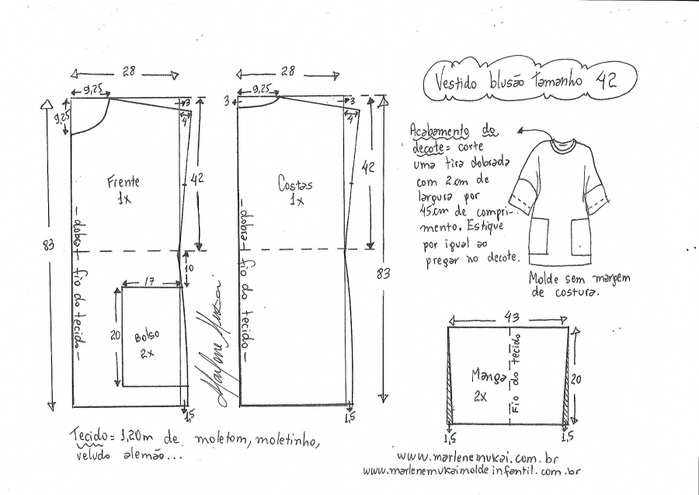 Vestido blusão tamanho 42
28
9,25
9,25
3
4
Frente
1x
42
83
-dobra- fio do tecido-
10
17
20
Bolso
2x
1,5
28
9,25
3
3
4
Costas
1x
42
83
-dobra- fio do tecido-
1,5
Marlene Mukai
Acabamento do
decote= corte
uma tira dobrada
com 2cm de
largura por
45cm de compri-
mento. Estique
por igual ao
pregar no decote.
Molde sem margem
de costura.
43
Manga
2x
Fio do tecido
20
1,5
1,5
Tecido= 1,20m de moletom, moletinho,
veludo alemão...
www.marlenemukai.com.br
www.marlenemukaimoldeinfantil.com.br